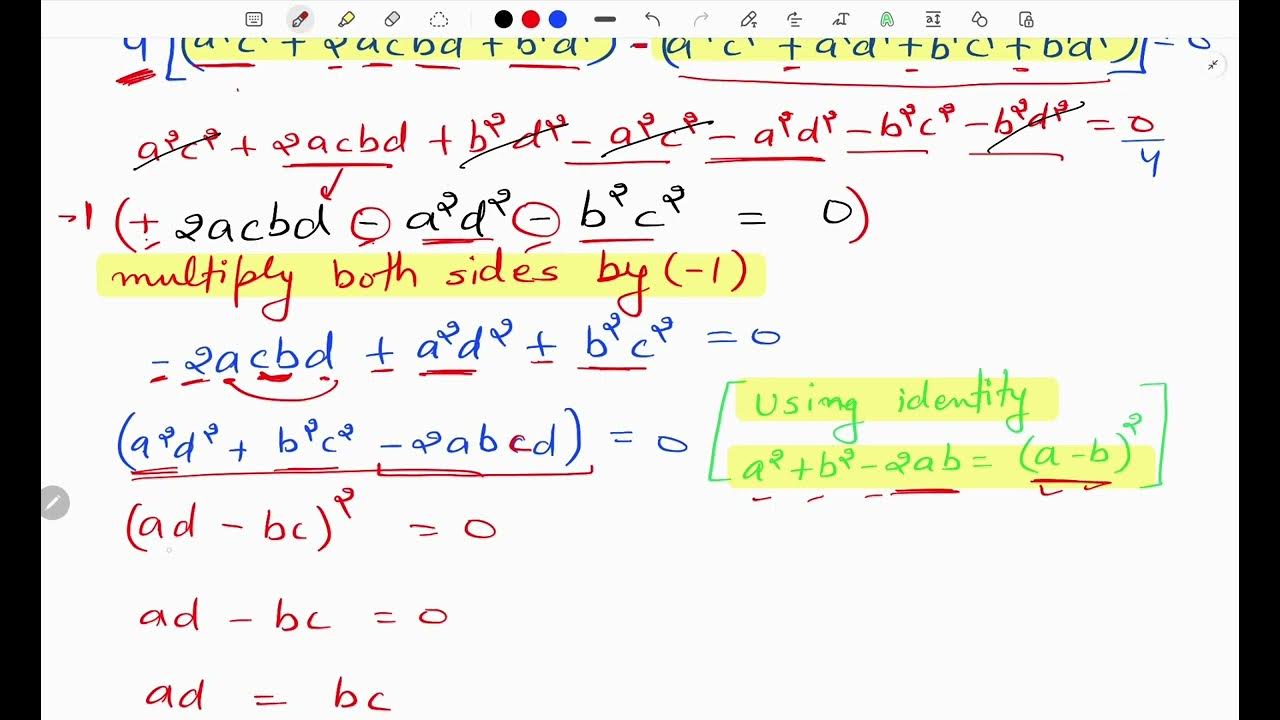 4[(a²c² + 2acbd + b²d²) - (a²c² + a²d² + b²c² + b²d²)] = 0
a²c² + 2acbd + b²d² - a²c² - a²d² - b²c² - b²d² = 0/4
-1 (+ 2acbd - a²d² - b²c² = 0)
multiply both sides by (-1)
- 2acbd + a²d² + b²c² = 0
(a²d² + b²c² - 2abcd) = 0 [using identity
a² + b² - 2ab = (a - b)²]
(ad - bc)² = 0
ad - bc = 0
ad = bc